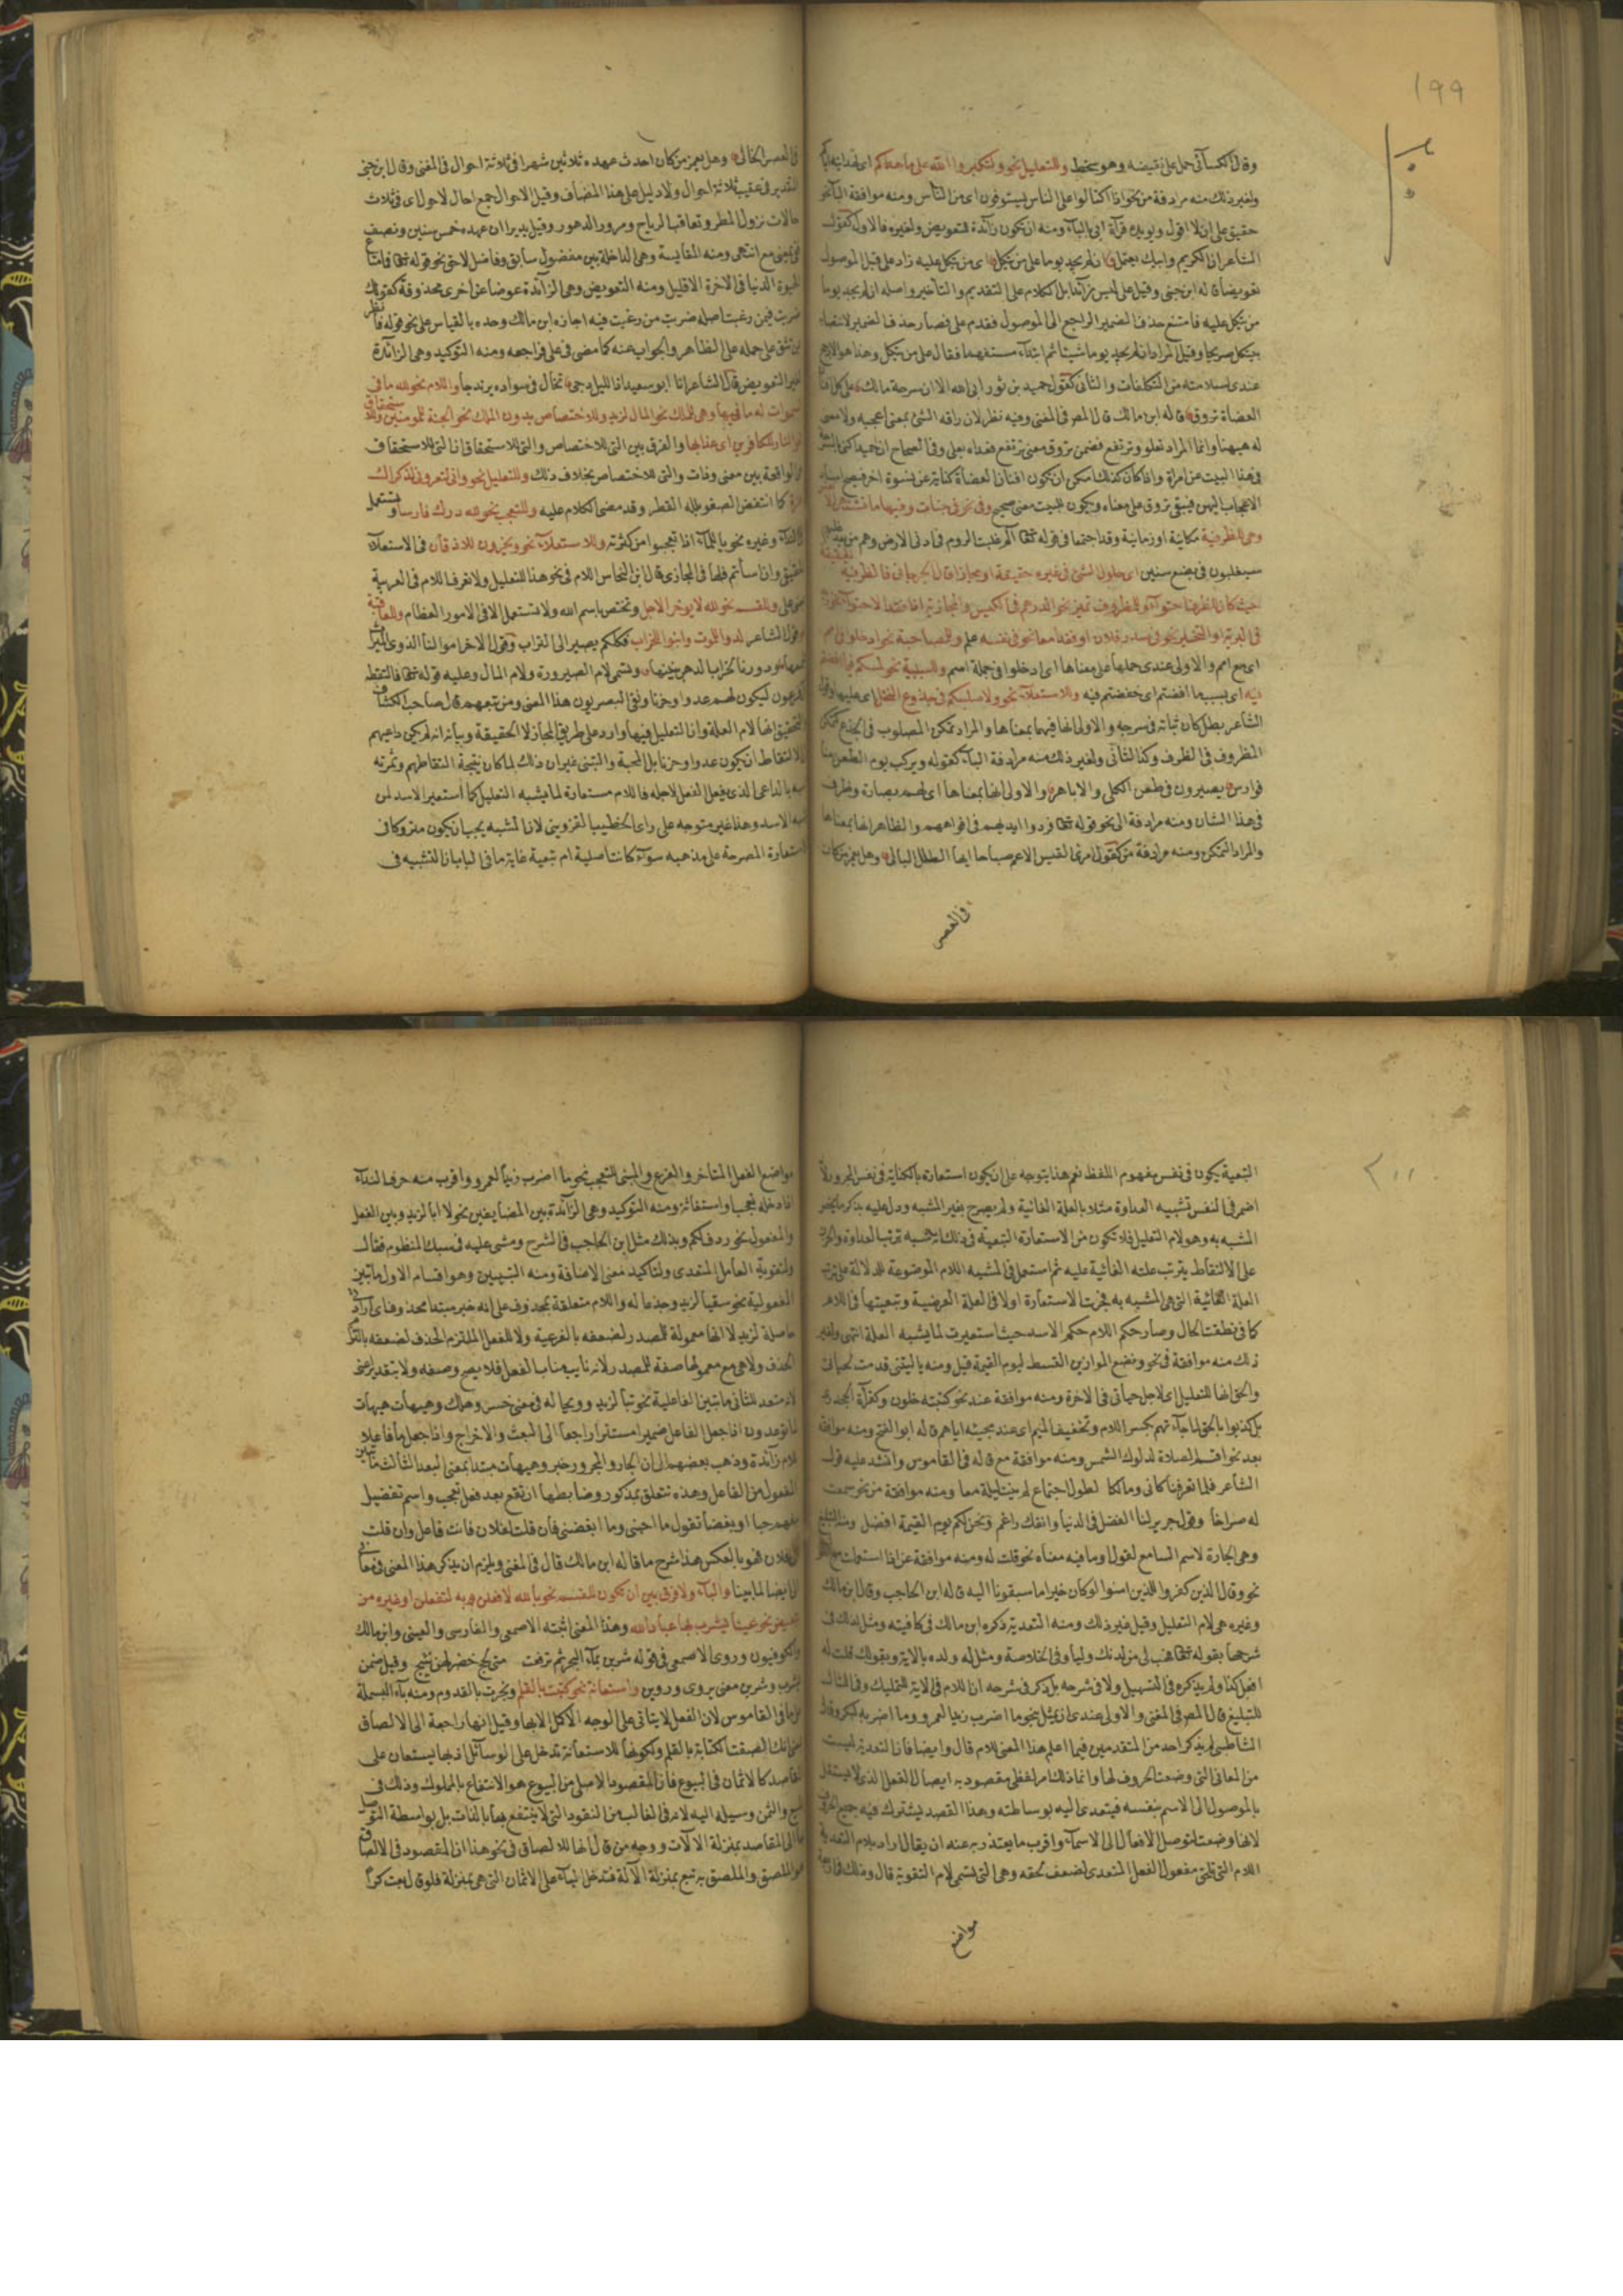 ١٩٩
وقال الكسائي حمل على نقيضه وهو سخط وللتعليل نحو ولتكبروا الله على ما هداكم اي لهدايته اياكم
ولغير ذلك منه مرادفة من نحو اذا اكتالوا على الناس يستوفون اي من الناس ومنه موافقة الباء نحو
حقيق على ان لا اقول ويؤيده قرآءة ابي بالباء ومنه ان يكون زائدة للتعويض ولغيره فالاول كقول
الشاعر ان الكريم وابيك يعتمل ان لم يجد يوما على من يتكل اي من يتكل عليه زاد على قبل الموصول
تعويضا قاله ابن جني وقيل على ليس زائدا بل الكلام على التقديم والتأخير واصله ان لم يجد يوما
من يتكل عليه فامتنع حذف الضمير الراجع الى الموصول فقدم على فصار حذف الضمير لانتصابه
بيتكل صريحا وقيل المراد ان لم يجد يوما شيئا ثم ابتدأ مستفهما فقال على من يتكل وهذا هو الارجح
عندي لسلامته من التكلفات والثاني كقول حميد بن ثور ابى الله الا ان سرحة مالك على كل افنان
العضاة تروق قاله ابن مالك قال المصر في المغني وفيه نظر لان راقه الشئ بمعنى اعجبه ولا معنى
له هيهنا وانما المراد تعلو وترتفع فضمن تروق معنى ترتفع فعداه بعلى وفي الصحاح ان حميدا كنى بالسرحة
في هذا البيت عن امرأة واذا كان كذلك امكن ان تكون افنان العضاة كناية عن نسوة اخر فيصح اسناد
الاعجاب اليهن فيبقى تروق على معناه ويكون للبيت معنى صحيح وفي نحو في جنات وفيها ما تشتهي
وهي للظرفية مكانية او زمانية وقد اجتمعا في قوله تعالى الم غلبت الروم في ادنى الارض وهم من بعد غلبهم
سيغلبون في بضع سنين اي حلول الشئ في غيره حقيقة او مجازا قال الجرجاني فالظرفية
حيث كان للظرف احتواء وللمظروف تميز نحو الدرهم في الكيس والمجازية اذا فقد الاحتواء نحو زيد
في البرية او التحيز نحو في صدر فلان او فقدا معا نحو في نفسه علم وللمصاحبة نحو ادخلوا في امم
اي مع امم والاولى عندي حملها على معناها اي ادخلوا في جملة امم والسببية نحو لمسكم فيما افضتم
فيه اي بسبب ما افضتم اي خضتم فيه وللاستعلاء نحو ولاصلبنكم في جذوع النخل اي عليها وقول
الشاعر بطل كان ثيابه في سرحة والاولى انها فيهما بمعناها والمراد تمكن المصلوب في الجذع تمكن
المظروف في الظرف وكذا الثاني ولغير ذلك منه مرادفة الباء كقوله ويركب يوم الطعن منا
فوارس يصيرون في طعن الكلى والاباهر والاولى انها بمعناها اي لهم بصارة وظرف
في هذا الشان ومنه مرادفة الى نحو قوله تعالى فردوا ايديهم في افواههم والظاهر انها بمعناها
والمراد التمكن ومنه مرادفة من كقول امرئ القيس الا عم صباحا ايها الطلل البالي وهل يعمن من كان
في العصر
في العصر الخالي وهل يعمن من كان احدث عهده ثلاثين شهرا في ثلاثة احوال في المغني وقال ابن جني
التقدير في عقيب ثلاثة احوال ولا دليل على هذا المضاف وقيل الاحوال جمع احال لا حول اي في ثلاث
حالات نزول المطر وتعاقب الرياح ومرور الدهور وقيل يريد ان عهده خمس سنين ونصف
ففي بمعنى مع انتهى ومنه المقايسة وهي الداخلة بين مفضول سابق وفاضل لاحق نحو قوله تعالى فما متاع
الحيوة الدنيا في الاخرة الا قليل ومنه التعويض وهي الزائدة عوضا عن اخرى محذوفة كقولك
ضربت فيمن رغبت اصله ضربت من رغبت فيه اجازه ابن مالك وحده بالقياس على نحو قوله فانظر
بمن تثق على حمله على الظاهر والجواب عنه كما مضى في على فراجعه ومنه التوكيد وهي الزائدة
لغير التعويض قال الشاعر انا ابو سعيد اذا الليل دجى تخال في سواده يرندجا واللام نحو لله ما في
السموات له ما فيها وهي للملك نحو المال لزيد وللاختصاص بدون الملك نحو الجنة للمؤمنين وللاستحقاق
نحو النار للكافرين اي عذابها والفرق بين التي للاختصاص والتي للاستحقاق ان التي للاستحقاق
هي الواقعة بين معنى وذات والتي للاختصاص بخلاف ذلك وللتعليل نحو واني لتعروني لذكراك
هزة كما انتفض العصفور بلله القطر وقد مضى الكلام عليه وللتعجب نحو لله درك فارسا ويستعمل
في النداء وغيره نحو يا للماء اذا تعجبوا من كثرته وللاستعلاء نحو ويخرون للاذقان في الاستعلاء
الحقيقي وان اسأتم فلها في المجازي قال ابن النحاس اللام في نحو هذا للتعليل ولا نعرف اللام في العربية
بمعنى على وللقسم نحو لله لا يؤخر الاجل وتختص باسم الله ولا تستعمل الا في الامور العظام وللعاقبة
نحو قول الشاعر لدوا للموت وابنوا للخراب فكلكم يصير الى التراب وقول الاخر اموالنا لذوي الميراث
نجمعها ودورنا لخراب الدهر نبنيها وتسمى لام الصيرورة ولام المآل وعليه قوله تعالى فالتقطه
آل فرعون ليكون لهم عدوا وحزنا ونفى البصريون هذا المعنى ومن تبعهم قال صاحب الكشاف
والتحقيق انها لام العلة وان التعليل فيها وارد على طريق المجاز لا الحقيقة وبيانه انه لم يكن داعيهم
الى الالتقاط ان يكون عدوا وحزنا بل المحبة والتبني غير ان ذلك لما كان نتيجة التقاطهم وثمرته
شبه بالداعي الذي يفعل الفعل لاجله فاللام مستعارة لما يشبه التعليل كما استعير الاسد لمن
يشبه الاسد وهذا غير متوجه على رأي الخطيب القزويني لان المشبه يجب ان يكون متروكا في
استعارة المصرحة على مذهبه سواء كانت اصلية ام تبعية غاية ما في الباب ان التشبيه في
٢٠٠
التبعية يكون في نفس مفهوم اللفظ نعم هذا يتوجه على ان يكون استعارة بالكناية في نفس المجرور لانه
اضمر في النفس تشبيه العداوة مثلا بالعلة الغائية ولم يصرح بغير المشبه ودل عليه بذكر ما يخص
المشبه به وهو لام التعليل فلا تكون من الاستعارة التبعية في ذلك انه شبه ترتب العداوة والحزن
على الالتقاط بترتب علته الغائية عليه ثم استعمل في المشبه اللام الموضوعة للدلالة على ترتب
العلة الغائية التي هي المشبه به فجرت الاستعارة اولا في العلة الغرضية وتبعيتها في اللام
كما في نطقت الحال وصار حكم اللام حكم الاسد حيث استعيرت لما يشبه العلة انتهى ولغير
ذلك منه موافقة في نحو ونضع الموازين القسط ليوم القيمة قيل ومنه يا ليتني قدمت لحياتي
والحق انها للتعليل اي لاجل حياتي في الاخرة ومنه موافقة عند نحو كتبته لخمس خلون وكقرآءة الجحدري
بل كذبوا بالحق لما جاءهم بكسر اللام وتخفيف الميم اي عند مجيئه اياهم قاله ابو الفتح ومنه موافقة
بعد نحو اقم الصلاة لدلوك الشمس ومنه موافقة مع قاله في القاموس وانشد عليه قول
الشاعر فلما تفرقنا كاني ومالكا لطول اجتماع لم نبت ليلة معا ومنه موافقة من نحو سمعت
له صراخا وقول جرير لنا الفضل في الدنيا وانفك راغم ونحن لكم يوم القيمة افضل ومنه التبليغ
وهي الجارة لاسم السامع لقول او ما فيه معناه نحو قلت له ومنه موافقة عن اذا استعملت مع القول
نحو وقال الذين كفروا للذين امنوا لو كان خيرا ما سبقونا اليه قاله ابن الحاجب وقال ابن مالك
وغيره هي لام التعليل وقيل غير ذلك ومنه التعدية ذكره ابن مالك في كافيته ومثل لذلك في
شرحها بقوله تعالى فهب لي من لدنك وليا وفي الخلاصة ومثل له ولده بالاية وبقولك قلت له
افعل كذا ولم يذكره في التسهيل ولا في شرحه بل ذكر في شرحه ان اللام في الاية للتمليك وفي المثال
للتبليغ قال المصر في المغني والاولى عندي ان يمثل بنحو ما اضرب زيدا لعمرو وما اضربه لبكر وقال
الشاطبي لم يذكر احد من المتقدمين فيما اعلم هذا المعنى للام قال وايضا فان التعدية ليست
من المعاني التي وضعت الحروف لها وانما ذلك امر لفظي مقصود به ايصال الفعل الذي لا يستقل
بالوصول الى الاسم بنفسه فيتعدى اليه بوساطته وهذا القصد يشترك فيه جميع الحروف
لانها وضعت لتوصل الافعال الى الاسماء واقرب ما يعتذر به عنه ان يقال اراد بلام التعدية
اللام التي تلي مفعول الفعل المتعدي لضعف لحقه وهي التي تسمى لام التقوية قال وذلك في اربعة
مواضع
مواضع الفعل المتأخر والفرع والمبنى للتعجب نحو ما اضرب زيدا لعمرو واقرب منه حرف النداء
اذا دخله تعجب او استغاثة ومنه التوكيد وهي الزائدة بين المضايفين نحو لا ابا لزيد وبين الفعل
والمفعول نحو ردف لكم وبذلك مثل ابن الحاجب في الشرح ومشى عليه في سبك المنظوم فقال
ولتقوية العامل المتعدي ولتأكيد معنى الاضافة ومنه التبيين وهو اقسام الاول ما تبين
المفعولية نحو سقيا لزيد وجدعا له واللام متعلقة بمحذوف على انه خبر مبتدا محذوف اي ارادتي
حاصلة لزيد لا انها معمولة للمصدر لضعفه بالفرعية ولا للفعل الملتزم الحذف لضعفه بالتزام
الحذف ولا هي مع معمولها صفة للمصدر لانه نايب مناب الفعل فلا يصح وصفه ولا بتقدير عنى
لانه متعد الثاني ما تبين الفاعلية نحو تبا لزيد وويحا له في معنى خسر وهلك وهيهات هيهات
لما توعدون اذا جعل الفاعل ضميرا مستترا راجعا الى البعث والاخراج واذا جعل ما فاعلا
فاللام زائدة وذهب بعضهم الى ان الجار والمجرور خبر وهيهات مبتدا بمعنى البعد الثالث ما تبين
المفعول من الفاعل وهذه تتعلق بمذكور وضابطها ان تقع بعد فعل تعجب واسم تفضيل
يفهم حبا او بغضا تقول ما احبني وما ابغضني فان قلت لفلان فانت فاعل وان قلت
الى فلان فهو بالعكس هذا شرح ما قاله ابن مالك قال في المغني ويلزم ان يذكر هذا المعنى في معاني
الى ايضا لما بينا والباء ولا فرق بين ان تكون للقسم نحو بالله لافعلن وبه لتفعلن او غيره من
تبعيض نحو عينا يشرب بها عباد الله وهذا المعنى اثبته الاصمعي والفارسي والعيني وابن مالك
والكوفيون وروى الاصمعي في قوله شربن بماء البحر ثم ترفعت متى لجج خضر لهن نئيج وقيل ضمن
يشرب وشربن معنى يروى وروين واستعانة نحو كتبت بالقلم ونجرت بالقدوم ومنه باء البسملة
على ما في القاموس لان الفعل لا يتأتى على الوجه الاكمل الا بها وقيل انها راجعة الى الالصاق
بمعنى انك الصقت الكتابة بالقلم ولكونها للاستعانة تدخل على الوسائل اذ بها يستعان على
المقاصد كالاثمان في البيوع فان المقصود الاصلي من البيوع هو الانتفاع بالمملوك وذلك في
المبيع والثمن وسيلة اليه لانه في الغالب من النقود التي لا ينتفع بها بالذات بل بواسطة التوصل
بها الى المقاصد بمنزلة الآلات ووجه من قال انها للالصاق في نحو هذا ان المقصود في الالصاق
هو الملصق والملصق به تبع بمنزلة الآلة فتدخل الباء على الاثمان التي هي بمنزلة فلو قال بعت كرا